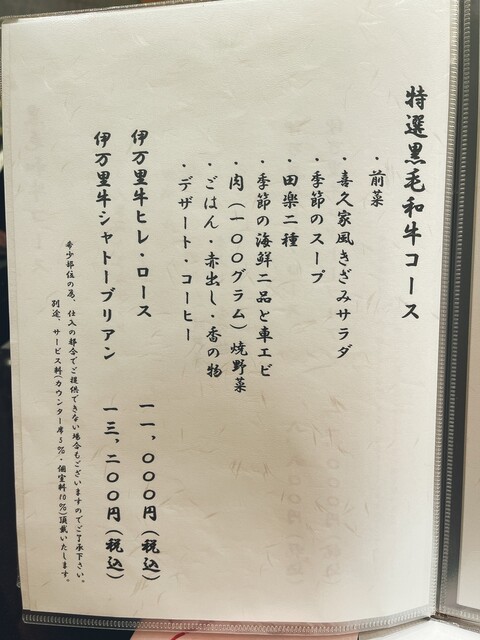 特選黒毛和牛コース
・前菜
・喜久家風きざみサラダ
・季節のスープ
・田楽二種
・季節の海鮮二品と車エビ
・肉(一〇〇グラム)焼野菜
・ごはん・赤出し・香の物
・デザート・コーヒー
伊万里牛ヒレ・ロース 一一,〇〇〇円(税込)
伊万里牛シャトーブリアン 一三,二〇〇円(税込)
希少部位の為、仕入の都合でご提供できない場合もございますのでご了承下さい。
別途、サービス料(カウンター席5%・個室料10%)頂戴いたします。